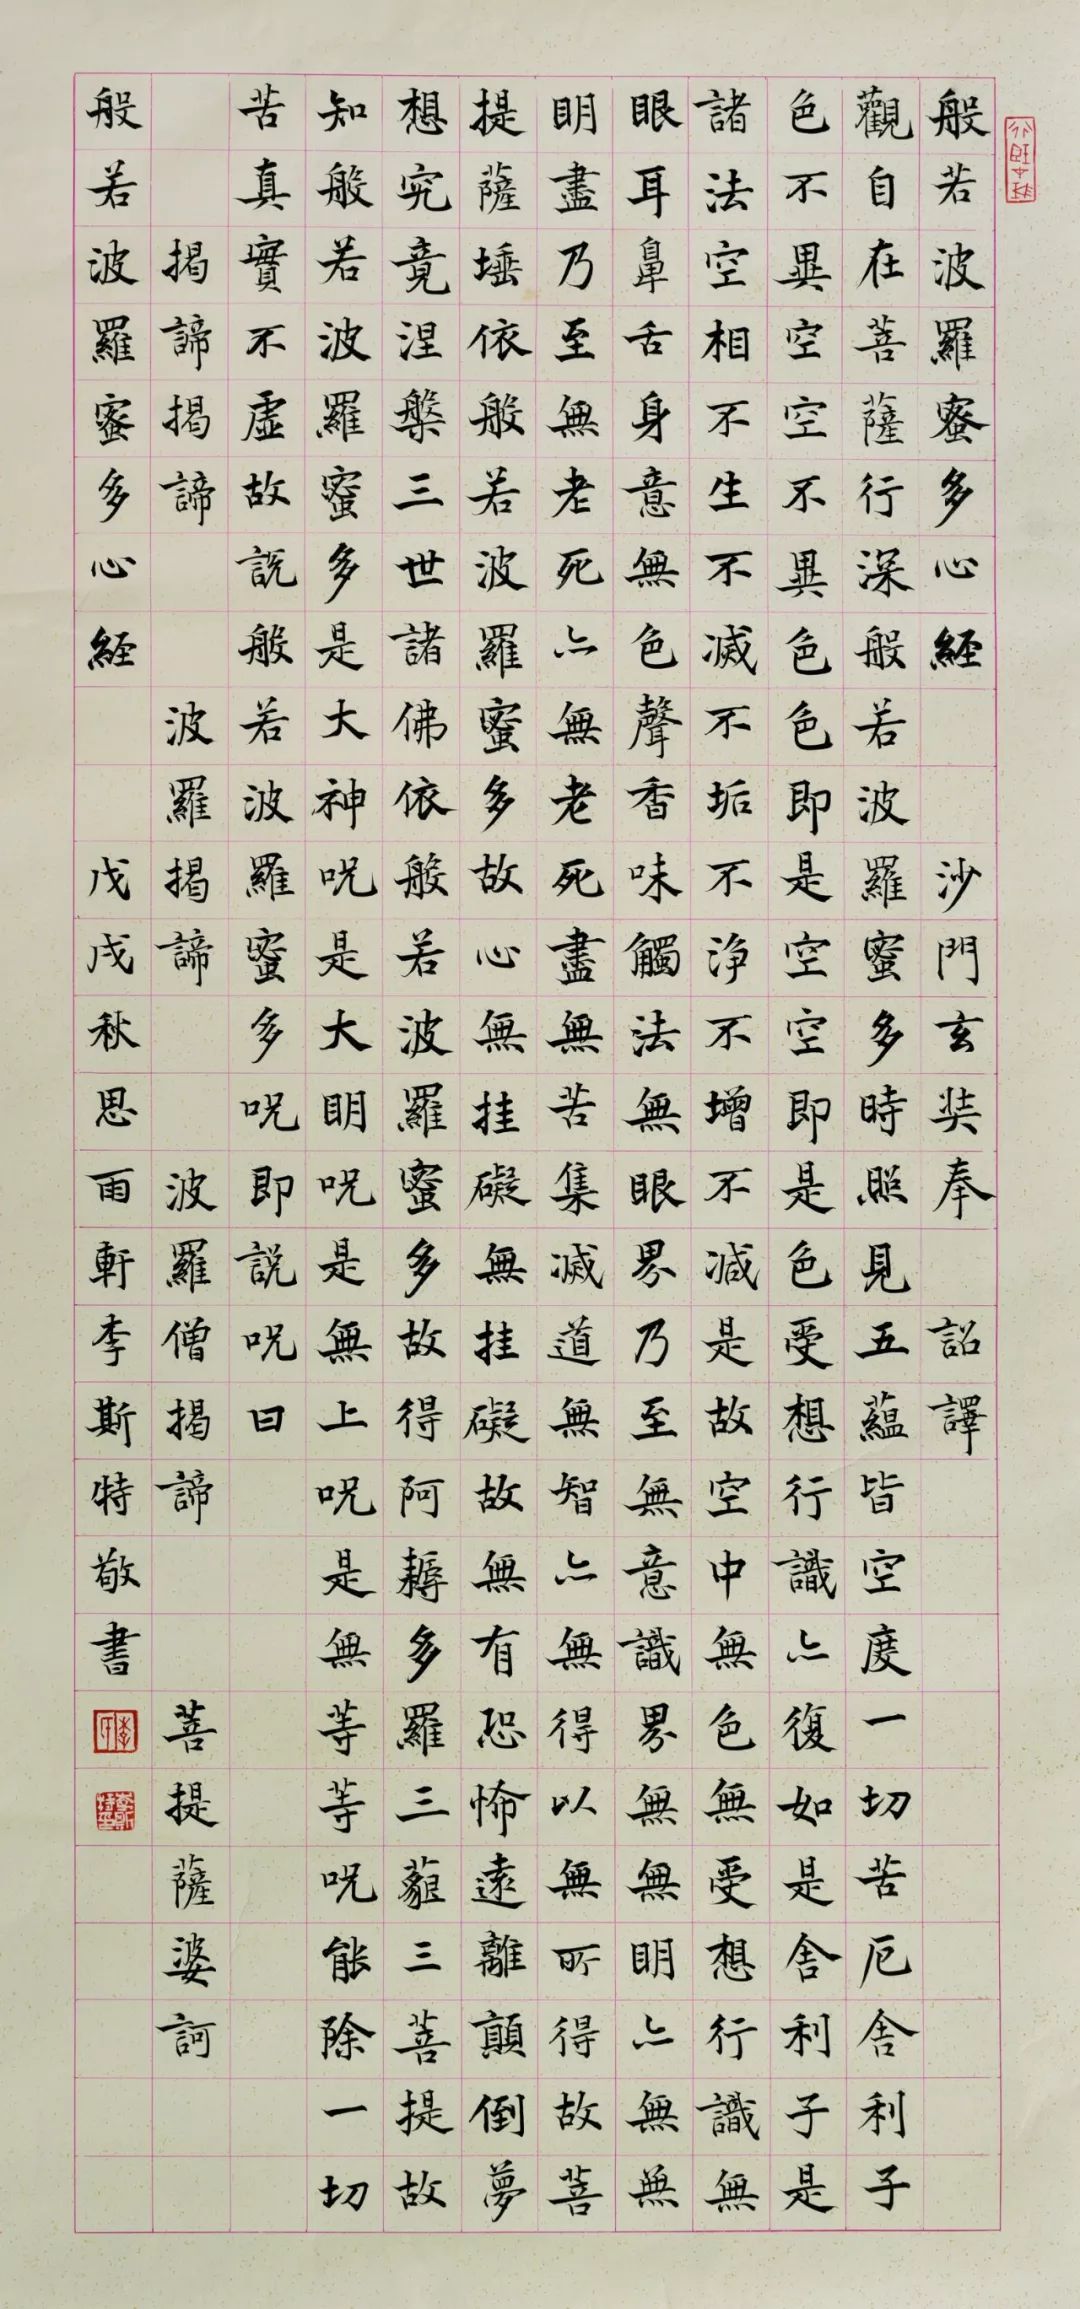 般若波羅蜜多心經 沙門玄奘奉 詔譯
觀自在菩薩行深般若波羅蜜多時照見五蘊皆空度一切苦厄舍利子
色不異空空不異色色即是空空即是色受想行識亦復如是舍利子是
諸法空相不生不滅不垢不淨不增不減是故空中無色無受想行識無
眼耳鼻舌身意無色聲香味觸法無眼界乃至無意識界無無明亦無無
明盡乃至無老死亦無老死盡無苦集滅道無智亦無得以無所得故菩
提薩埵依般若波羅蜜多故心無挂礙無挂礙故無有恐怖遠離顛倒夢
想究竟涅槃三世諸佛依般若波羅蜜多故得阿耨多羅三藐三菩提故
知般若波羅蜜多是大神呪是大明呪是無上呪是無等等呪能除一切
苦真實不虛故說般若波羅蜜多呪即說呪曰
揭諦揭諦 波羅揭諦 波羅僧揭諦 菩提薩婆訶
般若波羅蜜多心經 戊戌秋思雨軒李斯特敬書